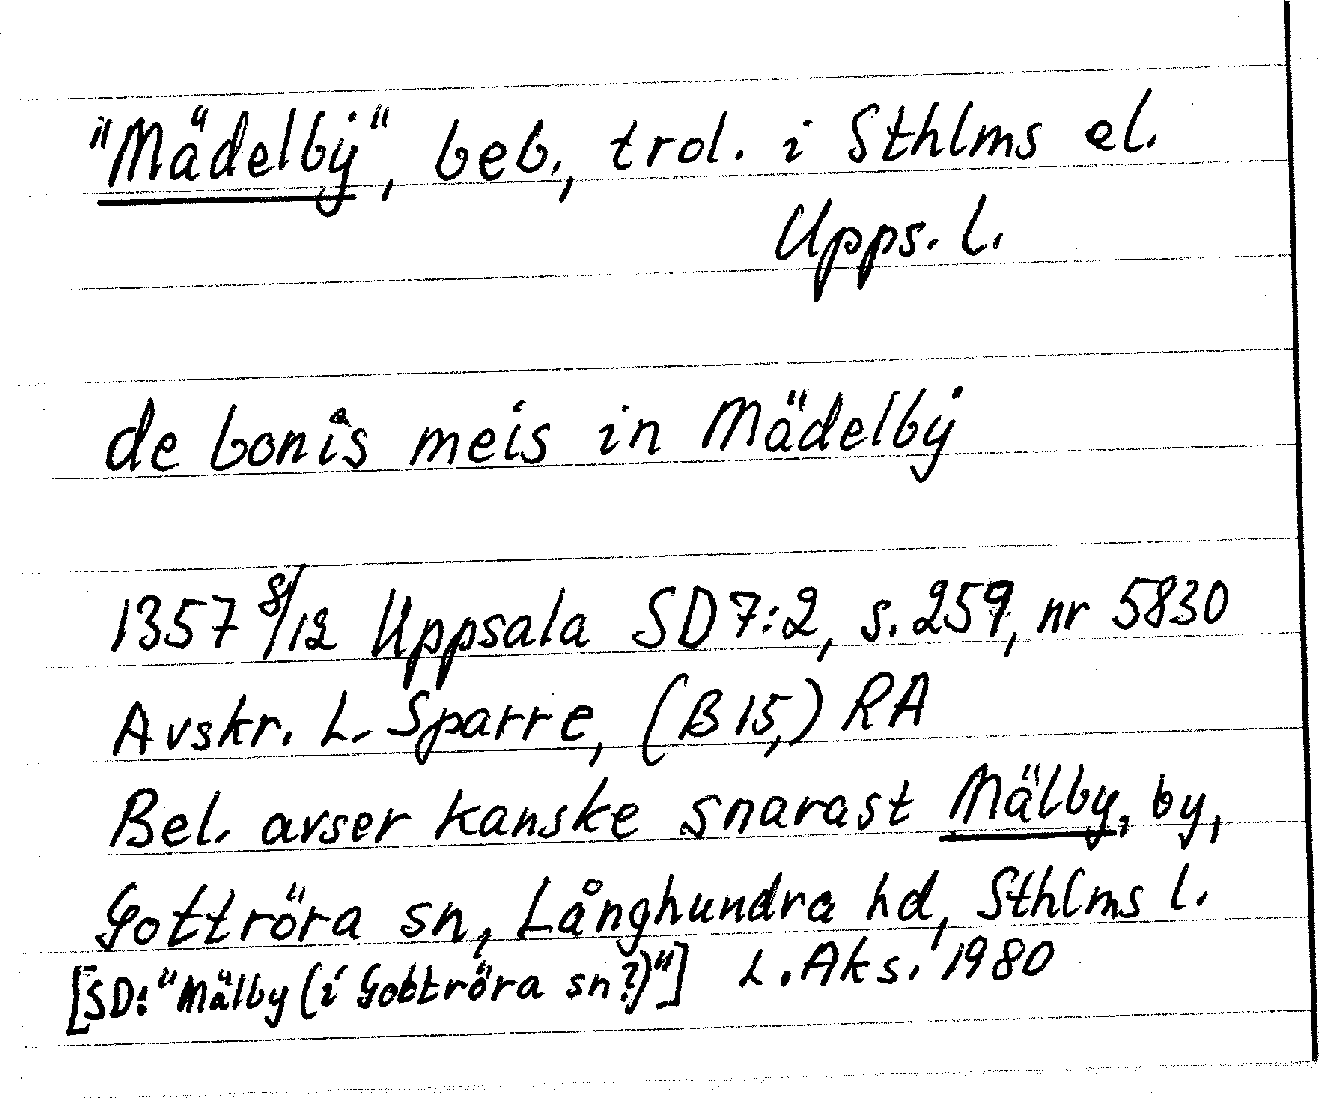 "Mädelbÿ", beb., trol. i Sthlms el.
Upps. l.
de bonis meis in Mädelbÿ
1357 8/12 Uppsala SD 7:2, s. 259, nr 5830
Avskr. L. Sparre, (B 15,) RA
Bel. avser kanske snarast Mälby, by,
Gottröra sn, Långhundra hd, Sthlms l.
[SD: "Mälby (i Gottröra sn?)"] L. Aks. 1980